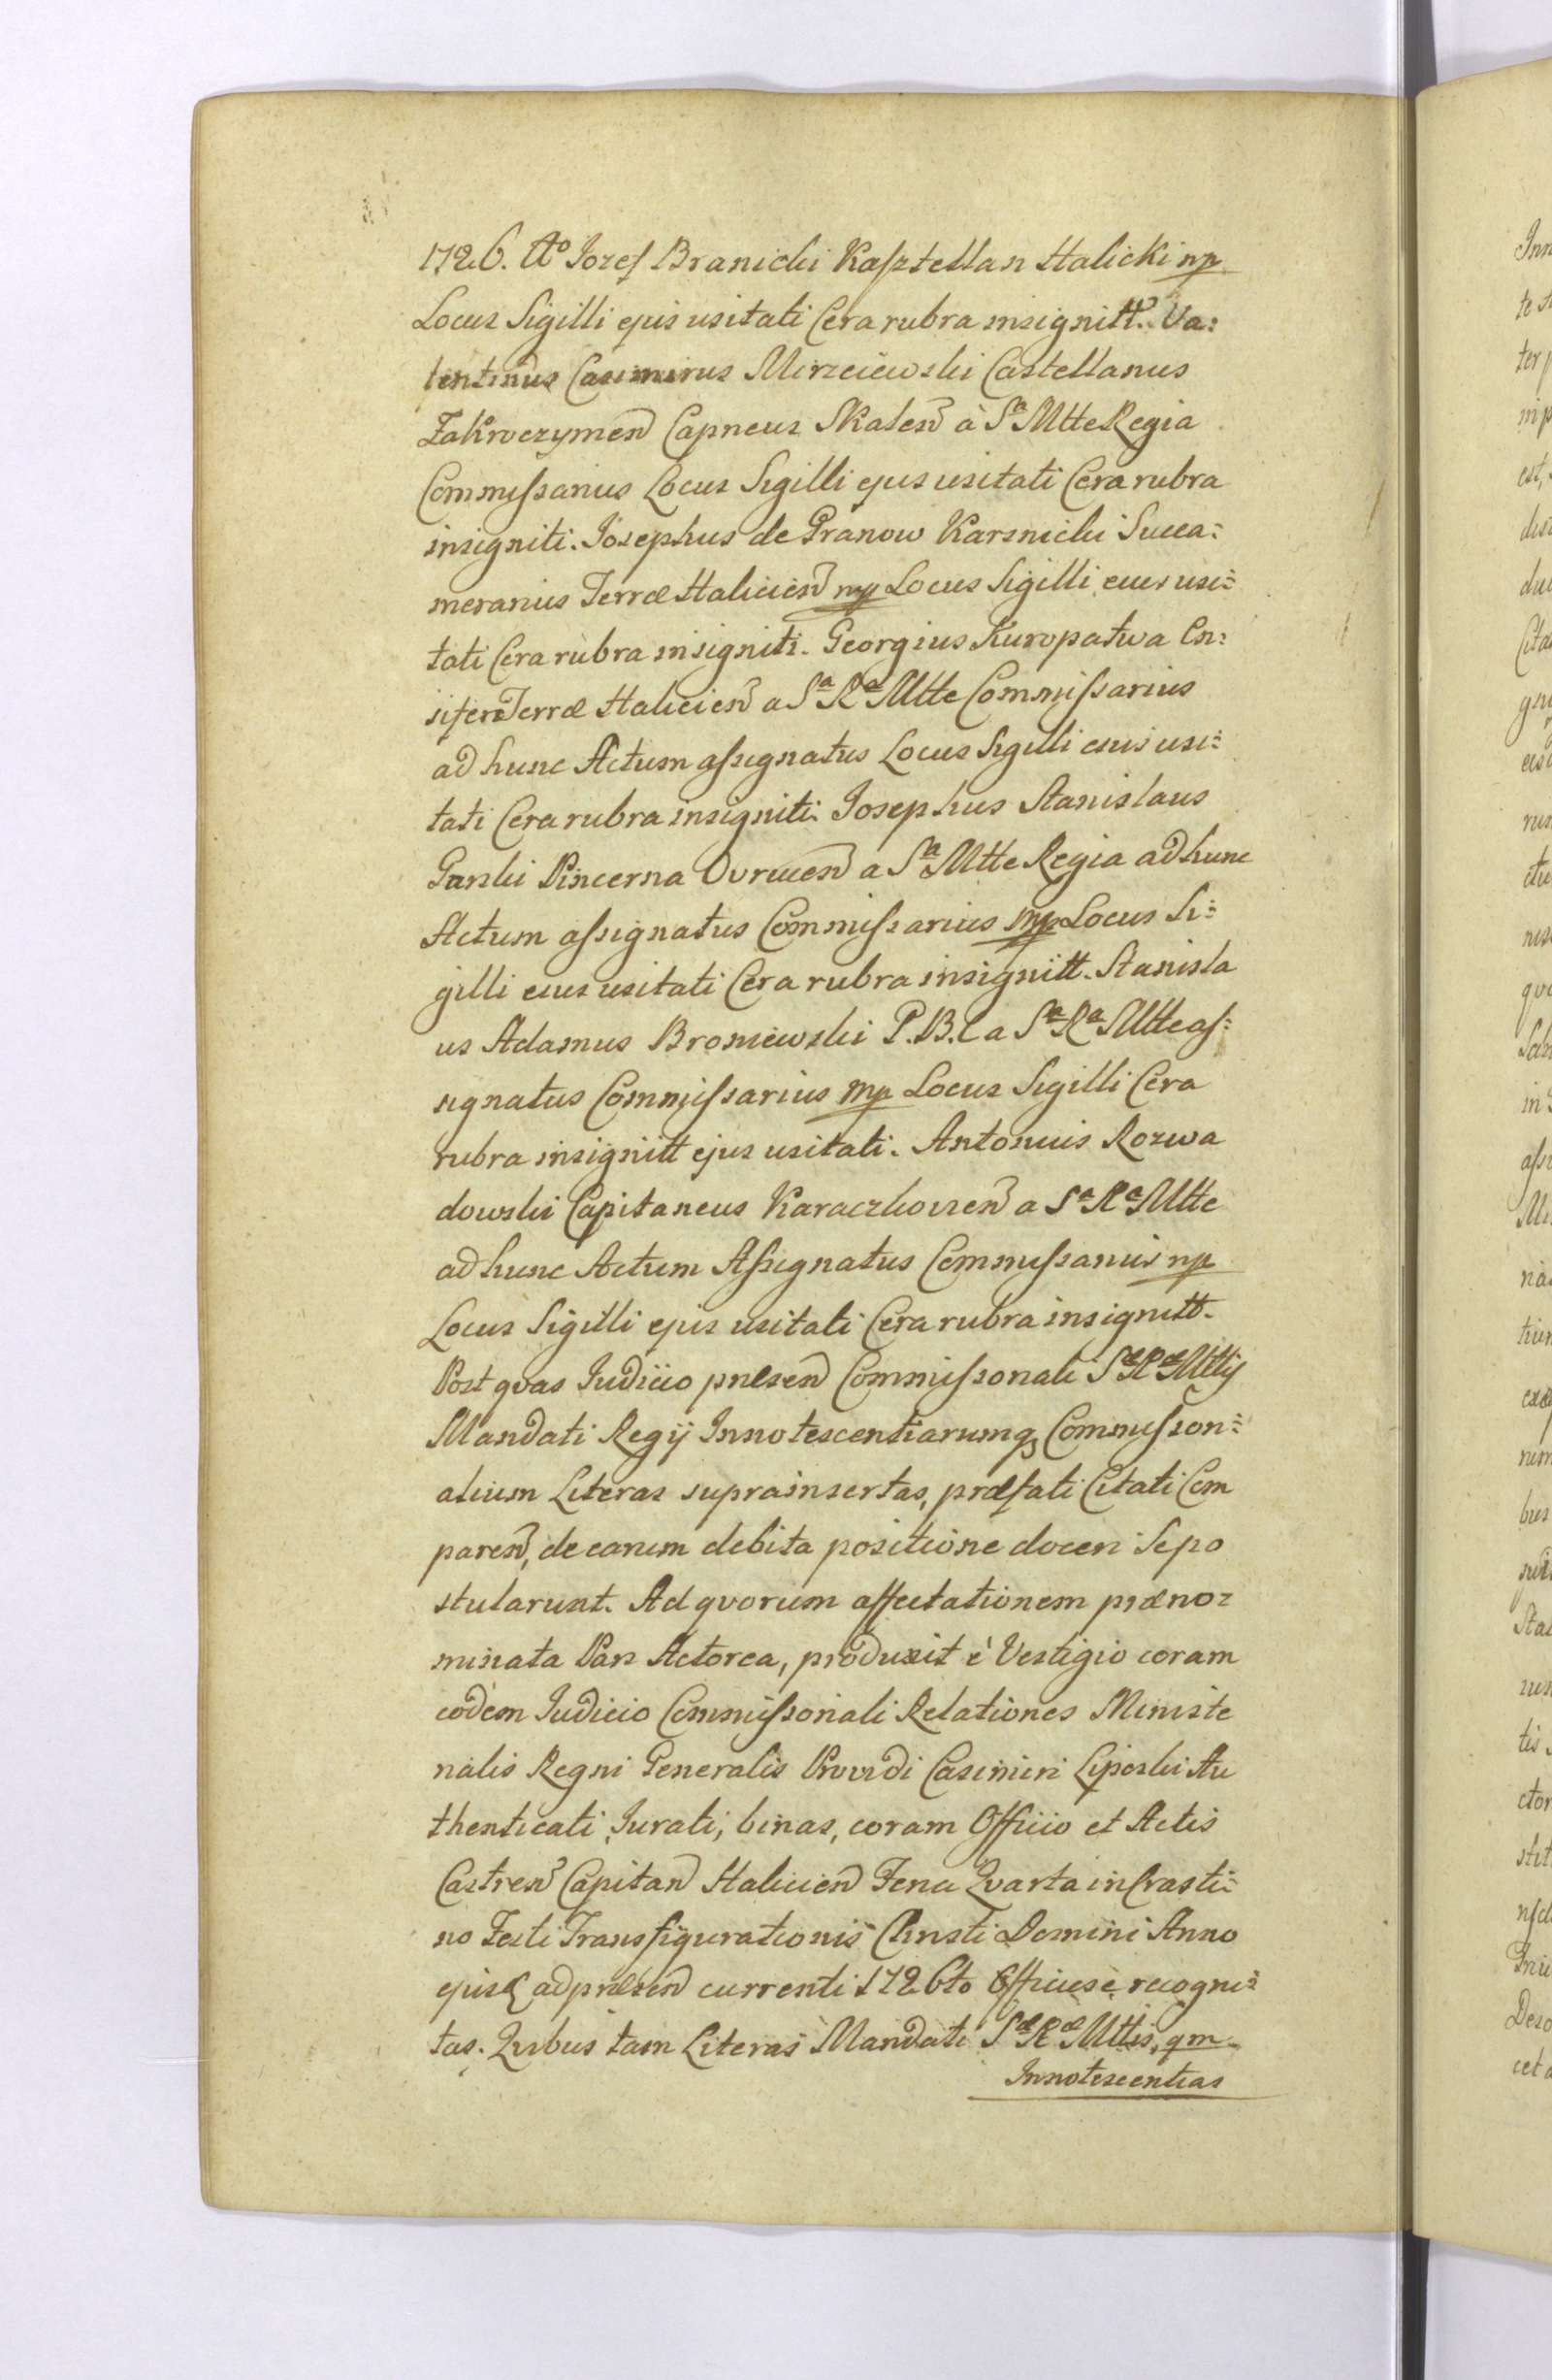 1726. Aº Jozef Branicki Kasztellan Halicki mp
Locus Sigilli ejus usitati Cera rubra insignitt. Va:
lentinus Casimirus Mirzeiewski Castellanus
Zakroczymen Capneus Skalen à Sª Mtte Regia
Commissarius Locus Sigilli ejus usitati Cera rubra
insigniti. Josephus de Granow Karsnicki Succa:
merarius Terræ Halicien mp Locus Sigilli eius usi:
tati Cera rubra insigniti. Georgius Kuropatwa En:
sifer Terræ Halicien a Sª Rª Mtte Commissarius
ad hunc Actum assignatus Locus Sigilli eius usi:
tati Cera rubra insigniti. Josephus Stanislaus
Garski Pincerna Ovrucen a Sª Mtte Regia ad hunc
Actum assignatus Commissarius mp Locus Si:
gilli eius usitati Cera rubra insignitt. Stanisla
us Adamus Broniewski P.B.C a Sª Rª Mtte as:
signatus Commissarius mp Locus Sigilli Cera
rubra insignitt ejus usitati. Antonius Rozwa
dowski Capitaneus Karaczkovien a Sª Rª Mtte
ad hunc Actum Assignatus Commissarius mp
Locus Sigilli ejus usitati Cera rubra insignitt.
Post qvas Judicio præsen Commissionali Sæ Ræ Mttis
Mandati Regij Innotescentiarumq Commission:
alium Literas suprainsertas, præfati Citati Com
paren, de earum debita positione doceri Sepo
stularunt. Ad qvorum affectationem præno:
minata Pars Actorea, produxit è Vestigio coram
eodem Judicio Commissionali Relationes Ministe
rialis Regni Generalis Providi Casimiri Lipeski Au
thenticati Jurati, binas, coram Officio et Actis
Castren Capitan Halicien Feria Qvarta in Crasti:
no Festi Transfigurationis Christi Domini Anno
ejus adpræsen currenti 1726to Officiose recogni:
tas. Qvibus tam Literas Mandati Sæ Ræ Mttis, qm
Innotescentias